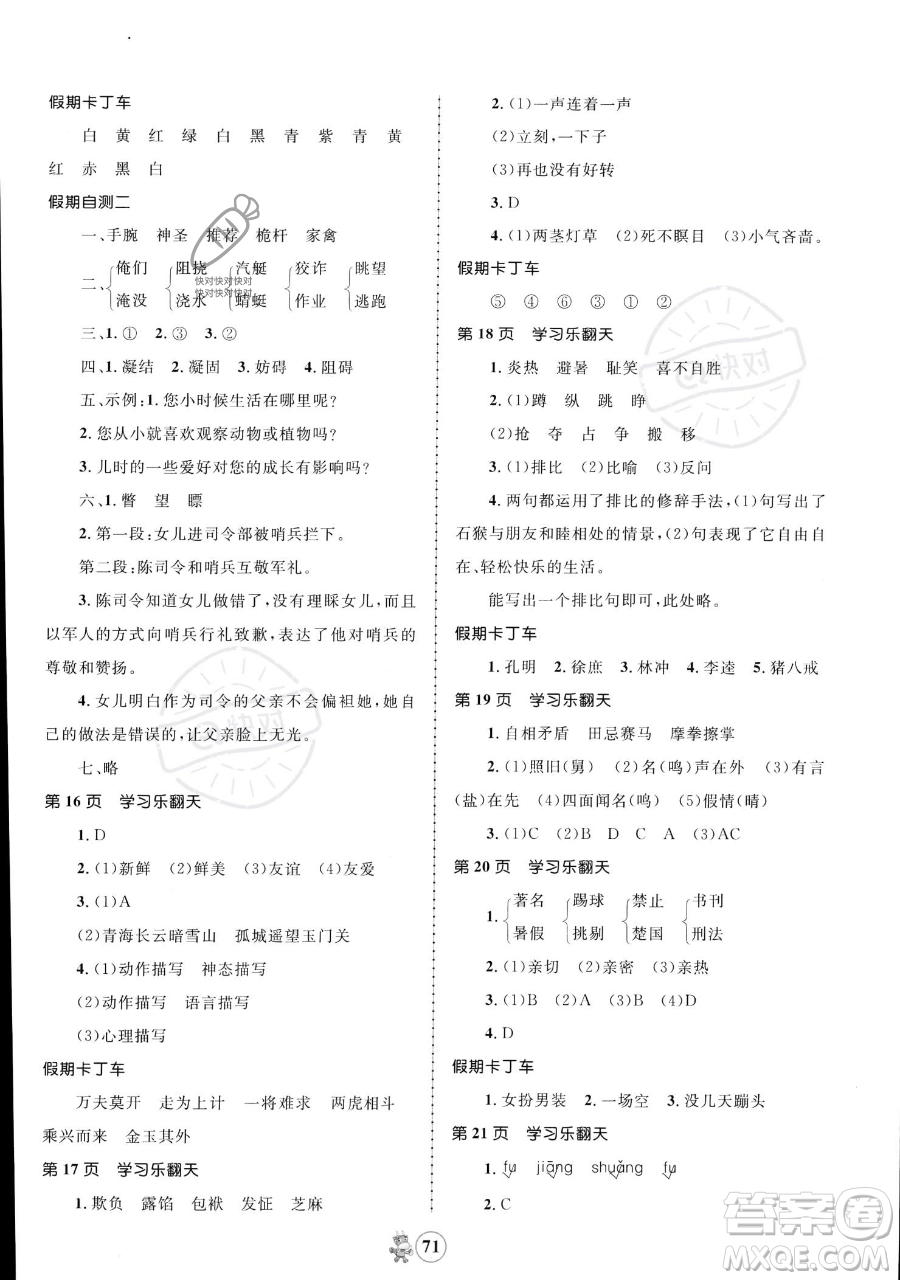 假期卡丁车
白 黄 红 绿 白 黑 青 紫 青 黄
红 赤 黑 白
假期自测二
一、手腕 神圣 推荐 桅杆 家禽
二、{俺们 淹没 {阻挠 浇水 {汽艇 蜻蜓 {狡诈 作业 {眺望 逃跑
三、1.① 2.② 3.②
四、1.凝结 2.凝固 3.妨碍 4.阻碍
五、示例:1.您小时候生活在哪里呢?
2.您从小就喜欢观察动物或植物吗?
3.儿时的一些爱好对您的成长有影响吗?
六、1.瞥 望 瞟
2.第一段:女儿进司令部被哨兵拦下。
第二段:陈司令和哨兵互敬军礼。
3.陈司令知道女儿做错了,没有理睬女儿,而且
以军人的方式向哨兵行礼致歉,表达了他对哨兵的
尊敬和赞扬。
4.女儿明白作为司令的父亲不会偏袒她,她自
己的做法是错误的,让父亲脸上无光。
七、略
第16页 学习乐翻天
1.D
2.(1)新鲜 (2)鲜美 (3)友谊 (4)友爱
3.(1)A
(2)青海长云暗雪山 孤城遥望玉门关
4.(1)动作描写 神态描写
(2)动作描写 语言描写
(3)心理描写
假期卡丁车
万夫莫开 走为上计 一将难求 两虎相斗
乘兴而来 金玉其外
第17页 学习乐翻天
1.欺负 露馅 包袱 发怔 芝麻
2.(1)一声连着一声
(2)立刻,一下子
(3)再也没有好转
3.D
4.(1)两茎灯草 (2)死不瞑目 (3)小气吝啬。
假期卡丁车
⑤ ④ ⑥ ③ ① ②
第18页 学习乐翻天
1.炎热 避暑 耻笑 喜不自胜
2.(1)蹲 纵 跳 睁
(2)抢 夺 占 争 搬 移
3.(1)排比 (2)比喻 (3)反问
4.两句都运用了排比的修辞手法,(1)句写出了
石猴与朋友和睦相处的情景,(2)句表现了它自由自
在、轻松快乐的生活。
能写出一个排比句即可,此处略。
假期卡丁车
1.孔明 2.徐庶 3.林冲 4.李逵 5.猪八戒
第19页 学习乐翻天
1.自相矛盾 田忌赛马 摩拳擦掌
2.(1)照旧(舅) (2)名(鸣)声在外 (3)有言
(盐)在先 (4)四面闻名(鸣) (5)假情(晴)
3.(1)C B D C A (2)C (3)AC
第20页 学习乐翻天
1.{著名 暑假 {踢球 挑剔 {禁止 楚国 {书刊 刑法
2.(1)亲切 (2)亲密 (3)亲热
3.(1)B (2)A (3)B
4.D
假期卡丁车
1.女扮男装 2.一场空 3.没几天蹦头
第21页 学习乐翻天
1.fu jiāng shuǎng fu
2.C
71
快对快对快对
快对快对快对
快对
快对
答案圈
MXQE.COM